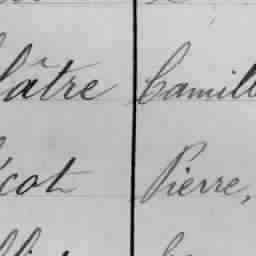 lâtre Camill
cot Pierre,